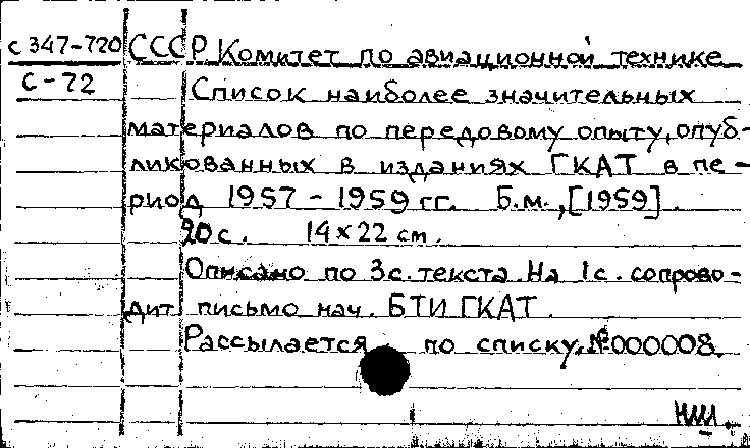 с 347-720 СССР Комитет по авиационной технике
С-72
Список наиболее значительных
материалов по передовому опыту, опуб-
ликованных в изданиях ГКАТ в пе-
риод 1957 - 1959 гг. Б.м., [1959].
20с. 14×22 cm.
Описано по 3с. текста На 1с. сопрово-
дит письмо нач. БТИ ГКАТ.
Рассылается по списку, № 000008.